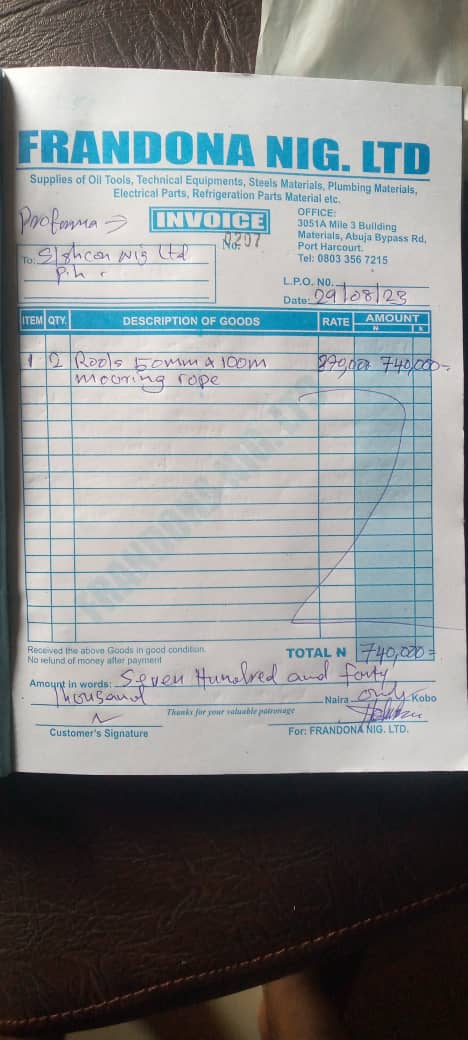 FRANDONA NIG. LTD
Supplies of Oil Tools, Technical Equipments, Steels Materials, Plumbing Materials,
Electrical Parts, Refrigeration Parts Material etc.
Proforma →
INVOICE
No. 0207
OFFICE:
3051A Mile 3 Building
Materials, Abuja Bypass Rd,
Port Harcourt.
Tel: 0803 356 7215
To: Nig Ltd
P.h.
L.P.O. NO.
Date: 29/08/23
ITEM QTY. DESCRIPTION OF GOODS RATE AMOUNT
N K
1 2 50mm x 100m 740,000=
mooring rope
FRANDONA NIG. LTD
Received the above Goods in good condition.
No refund of money after payment
TOTAL N 740,000=
Amount in words: Seven Hundred and forty
Thousand Naira only Kobo
Thanks for your valuable patronage
Customer's Signature
For: FRANDONA NIG. LTD.